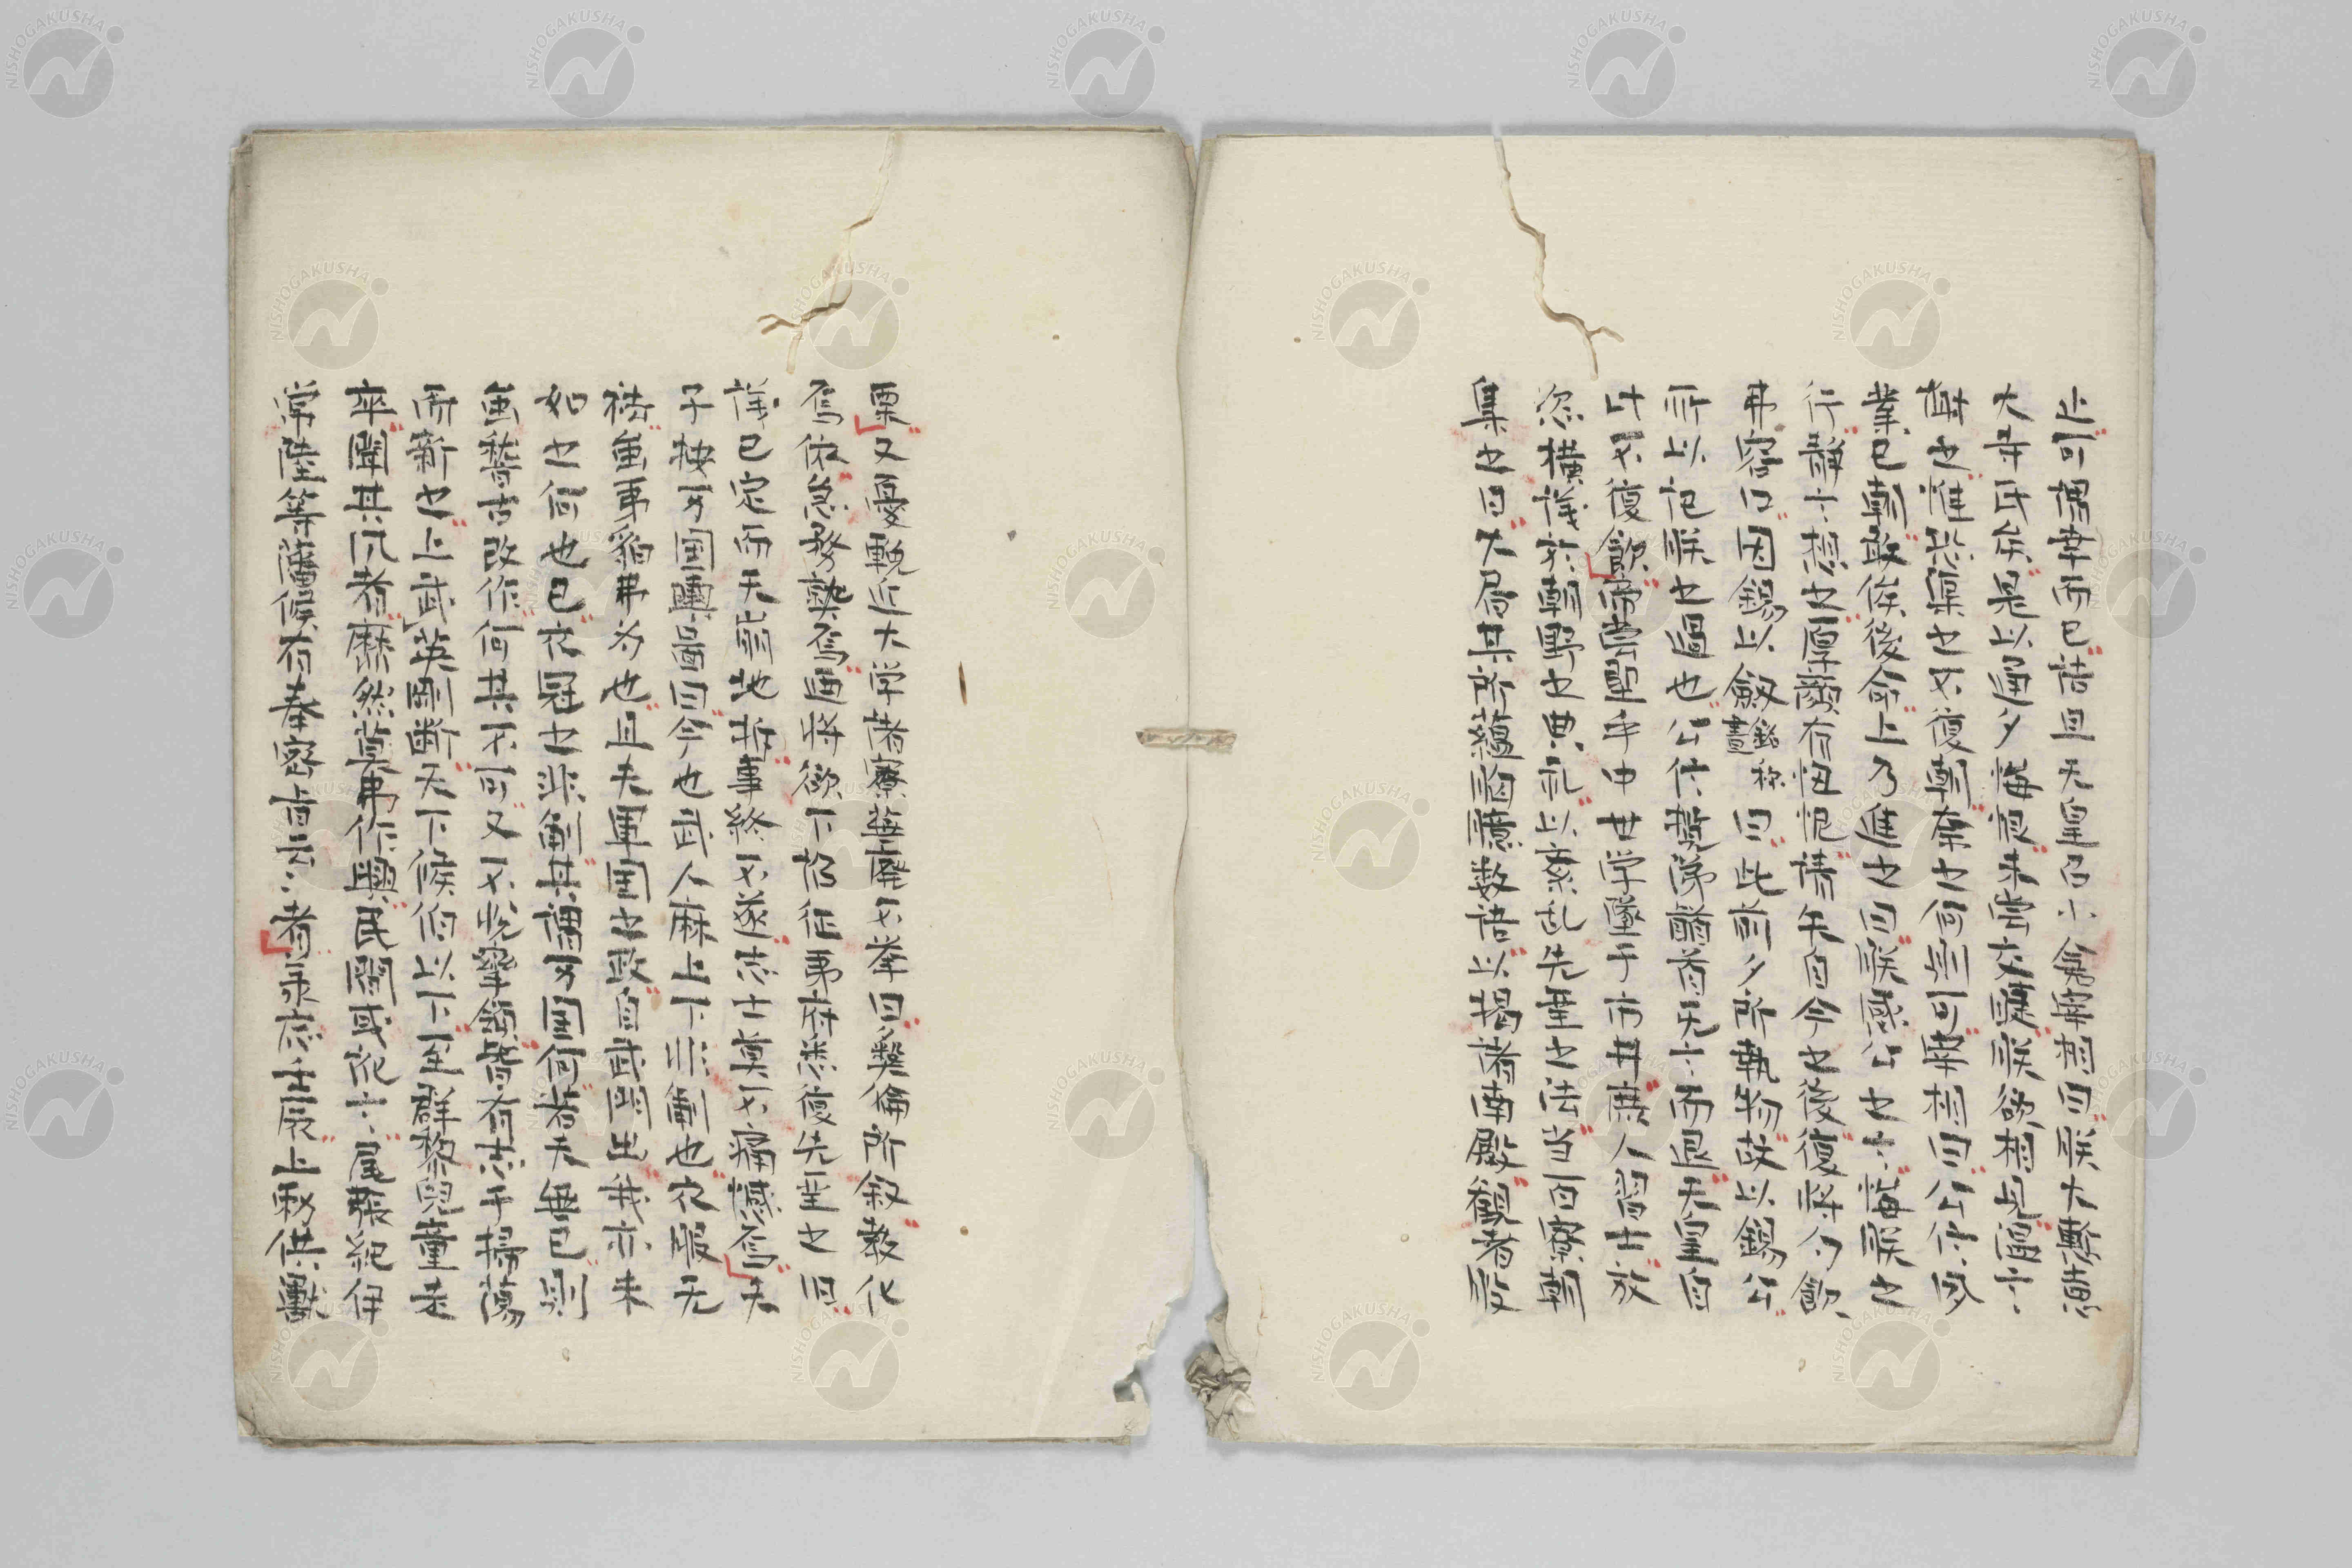 上可謂幸而已誥旦天皇召小倉宰相曰朕大慙慙
大寺氏矣是以通夕悔恨未嘗交睫朕欲相見謚云
悔之惟恐渠也不復朝柰之何則可宰相曰公仕因
業已朝敢俟後命上乃進之曰朕感公之言悔朕之
行靜言想之厚顏有忸怩請矢自今之後復將勿飲
弗容口因錫以劔 曰此前夕所執物故以錫公
所以記朕之過也公仕 稽首 言而退天皇自
此不復飲帝 聖乎中世学墜于市井庶人習士放
恣橫議於朝野之典 以紊乱先聖之法当百寮朝
集之日大局其所蘊胸臆数語以揭諸南殿観者股
栗又憂輓近大学諸寮 廃不挙曰彝倫所叙教化
焉依急務孰焉迺將欲下招征夷府悉復先聖之旧
議已定而天崩地拆事終不遂志士莫不痛憾焉夫
子按万国輿啚曰今也武人麻上下非制也衣服无
裃虽夷貊弗为也且夫軍国之政自武門出我亦未
如之何也已衣冠之非制其謂万国何若无無已則
虽稽古改作何其不可又不 挈領皆有志乎掃蕩
而新之上武英剛断天下侯伯以下至群黎兒童走
卒聞其風者靡然莫弗作興民間或訛言尾張紀伊
常陸等藩侯有奉密旨云云者 志士展上野供獻